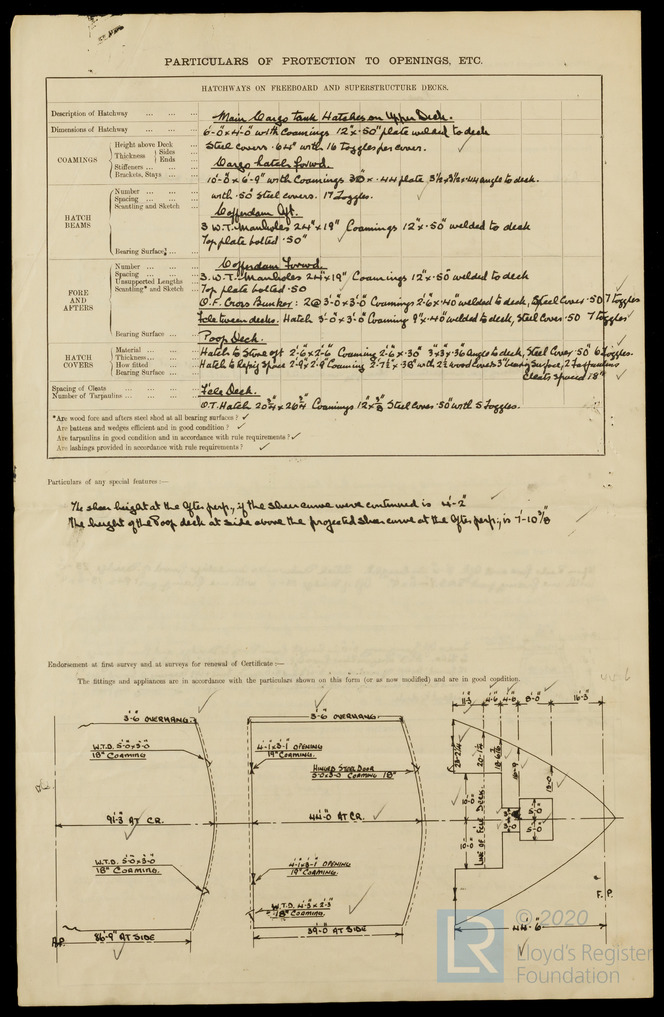 PARTICULARS OF PROTECTION TO OPENINGS, ETC.
HATCHWAYS ON FREEBOARD AND SUPERSTRUCTURE DECKS.
Description of Hatchway ... ... ... Main Cargo tank Hatches on Upper Deck.
Dimensions of Hatchway ... ... ... 6-0 x 4-0 with Coamings 12" x .50" plate welded to deck
COAMINGS
Height above Deck ... Steel covers .64" with 16 Toggles per cover.
Thickness Sides
Ends
Cargo hatch forwd.
Stiffeners ... ... ...
Brackets, Stays ... ... 10'-3" x 6-9" with Coamings x .44 plate 3½ x 3½ x .44 angle to deck.
HATCH BEAMS
Number ... ... ... with .50 Steel covers. 17 Toggles.
Spacing ... ... ...
Scantling and Sketch ... Cofferdam Aft.
3 W.T. Manholes 24" x 19" Coamings 12" x .50" welded to deck
Top plate bolted .50"
Bearing Surface ... ...
FORE AND AFTERS
Number ... ... ... Cofferdam Forwd.
Spacing ... ... ...
Unsupported Lengths
Scantling* and Sketch
3. W.T. Manholes 24" x 19" Coamings 12" x .50 welded to deck
Top plate bolted .50
O.F. Cross Bunker: 2 @ 3'-0" x 3'-0" Coamings 2'-6" x .40" welded to deck, Steel Cover .50 7 toggles
Fcle tween decks. Hatch 3'-0" x 3'-0" Coaming 9" x .40" welded to deck, Steel Cover .50 7 toggles
Bearing Surface ... ... Poop Deck.
HATCH COVERS
Material ... ... Hatch to Store aft 2'-6" x 2'-6" Coaming 2'-6" x .30" 3" x 3" x .36 Angle to deck, Steel Cover .50" 6 Toggles.
Thickness ... ...
How fitted ... ... Hatch to Refrig space 2'-9" x 2'-9" Coaming 2'-7½" x .38" with 2½ wood Covers 3" bearing Surface, 2 Tarpaulins
Bearing Surface ... Cleats spaced 18"
Spacing of Cleats ... ... ... Fcle Deck.
Number of Tarpaulins ... ...
O.T. Hatch 20¾" x 26¾" Coamings 12" x ⅜" Steel Cover .50" with 5 Toggles.
*Are wood fore and afters steel shod at all bearing surfaces?
Are battens and wedges efficient and in good condition?
Are tarpaulins in good condition and in accordance with rule requirements?
Are lashings provided in accordance with rule requirements?
Particulars of any special features:—
The sheer height at the After perp., if the sheer curve were continued is 4'-2"
The height of the Poop deck at side above the projected sheer curve at the After perp., is 7'-10⅜"
Endorsement at first survey and at surveys for renewal of Certificate:—
The fittings and appliances are in accordance with the particulars shown on this form (or as now modified) and are in good condition.
3'-6" OVERHANG.
W.T.D. 5'-0" x 3'-0"
18" COAMING
91'-3" AT CR.
W.T.D. 5'-0" x 3'-0"
18" COAMING.
A.P.
86'-9" AT SIDE
3'-6" OVERHANG.
4'-1" x 3'-1" OPENING
19" COAMING.
HINGED STEEL DOOR
5'-0" x 3'-0" COAMING 18"
44'-0" AT CR.
4'-1" x 3'-1" OPENING
19" COAMING.
W.T.D. 4'-3" x 2'-3"
18" COAMING.
39'-0" AT SIDE
11'-3" 4'-6" 4'-6" 8'-0" 16'-3"
23'-2¼"
20'-1½"
16'-9"
13'-0"
10'-0"
10'-0"
LINE OF FCLE DECK.
5'-0"
5'-0"
F.P.
44'-6"
LR
© 2020
Lloyd's Register
Foundation